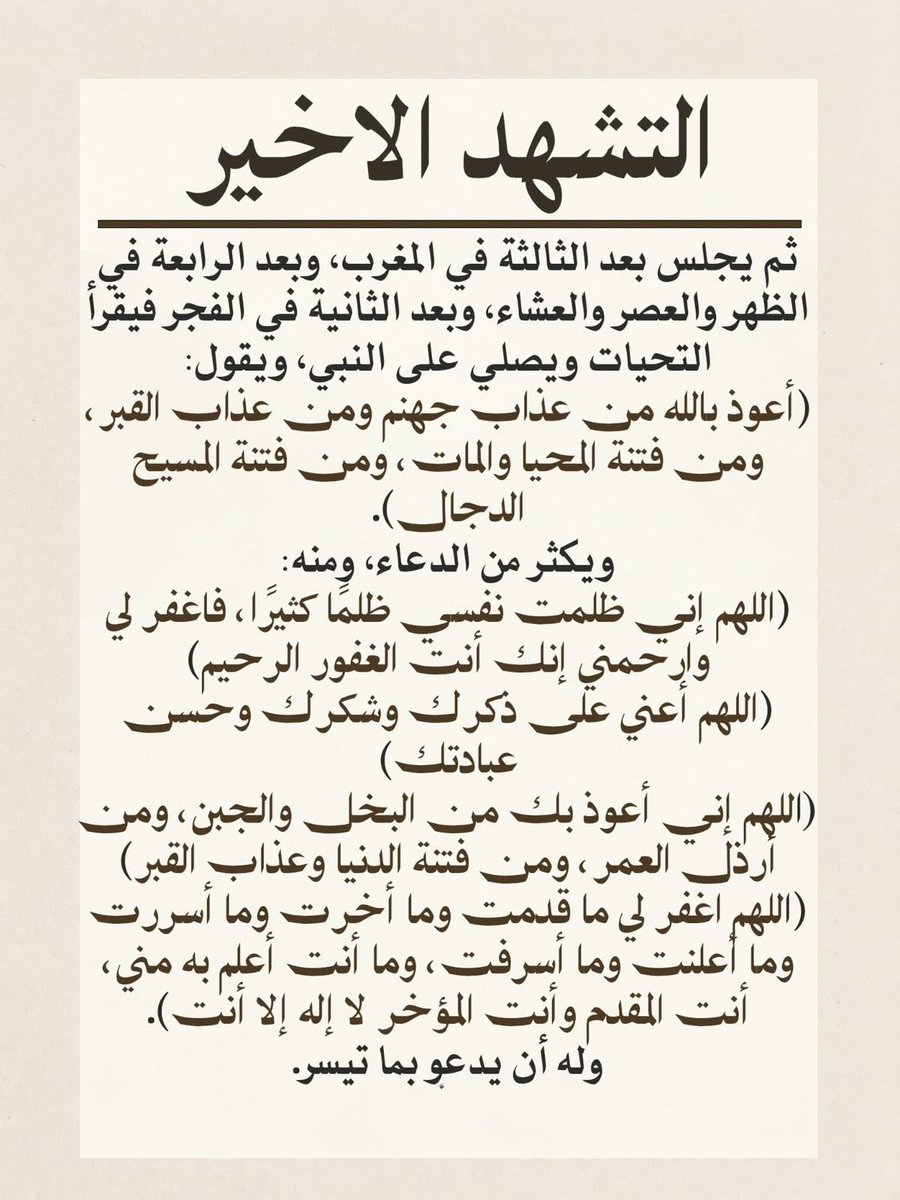 التشهد الاخير
ثم يجلس بعد الثالثة في المغرب، وبعد الرابعة في
الظهر والعصر والعشاء، وبعد الثانية في الفجر فيقرأ
التحيات ويصلي على النبي، ويقول:
(أعوذ بالله من عذاب جهنم ومن عذاب القبر،
ومن فتنة المحيا والمات، ومن فتنة المسيح
الدجال).
ويكثر من الدعاء، ومنه:
(اللهم إني ظلمت نفسي ظلمًا كثيرًا، فاغفر لي
وارحمني إنك أنت الغفور الرحيم)
(اللهم أعني على ذكرك وشكرك وحسن
عبادتك)
(اللهم إني أعوذ بك من البخل والجبن، ومن
أرذل العمر، ومن فتنة الدنيا وعذاب القبر)
(اللهم اغفر لي ما قدمت وما أخرت وما أسررت
وما أعلنت وما أسرفت، وما أنت أعلم به مني،
أنت المقدم وأنت المؤخر لا إله إلا أنت).
وله أن يدعو بما تيسر.